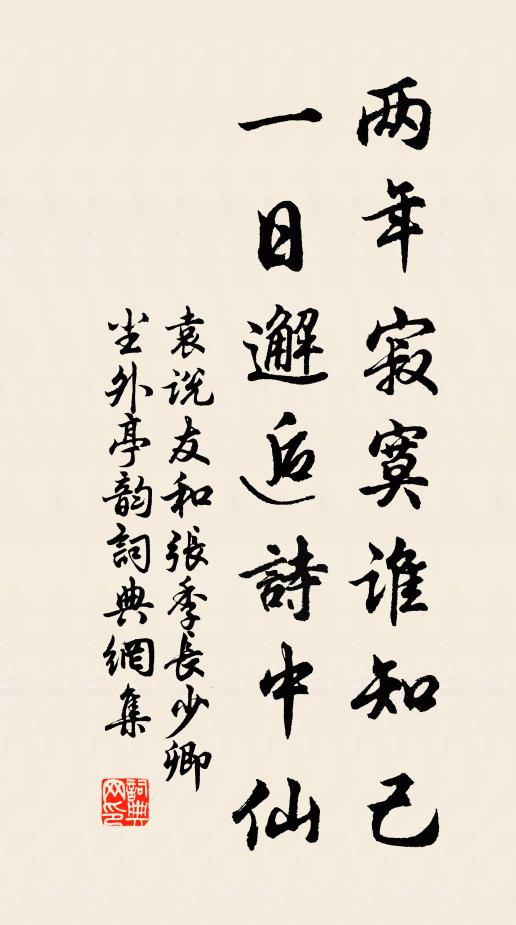 两年寂寞谁知己
一日邂逅詩中仙
袁说友和張季長少卿
尘外亭韵詞典網集
詞典网印